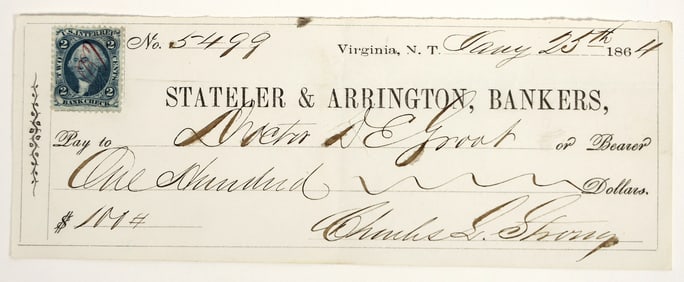 U.S. INTER. REV.
2 2
TWO CENTS
2 2
BANK CHECK
No. 5499 Virginia, N. T. Jany 25th 1864
STATELER & ARRINGTON, BANKERS,
Pay to Doctor D E Groot or Bearer
One Hundred Dollars.
$ 100#
Charles L. Strong